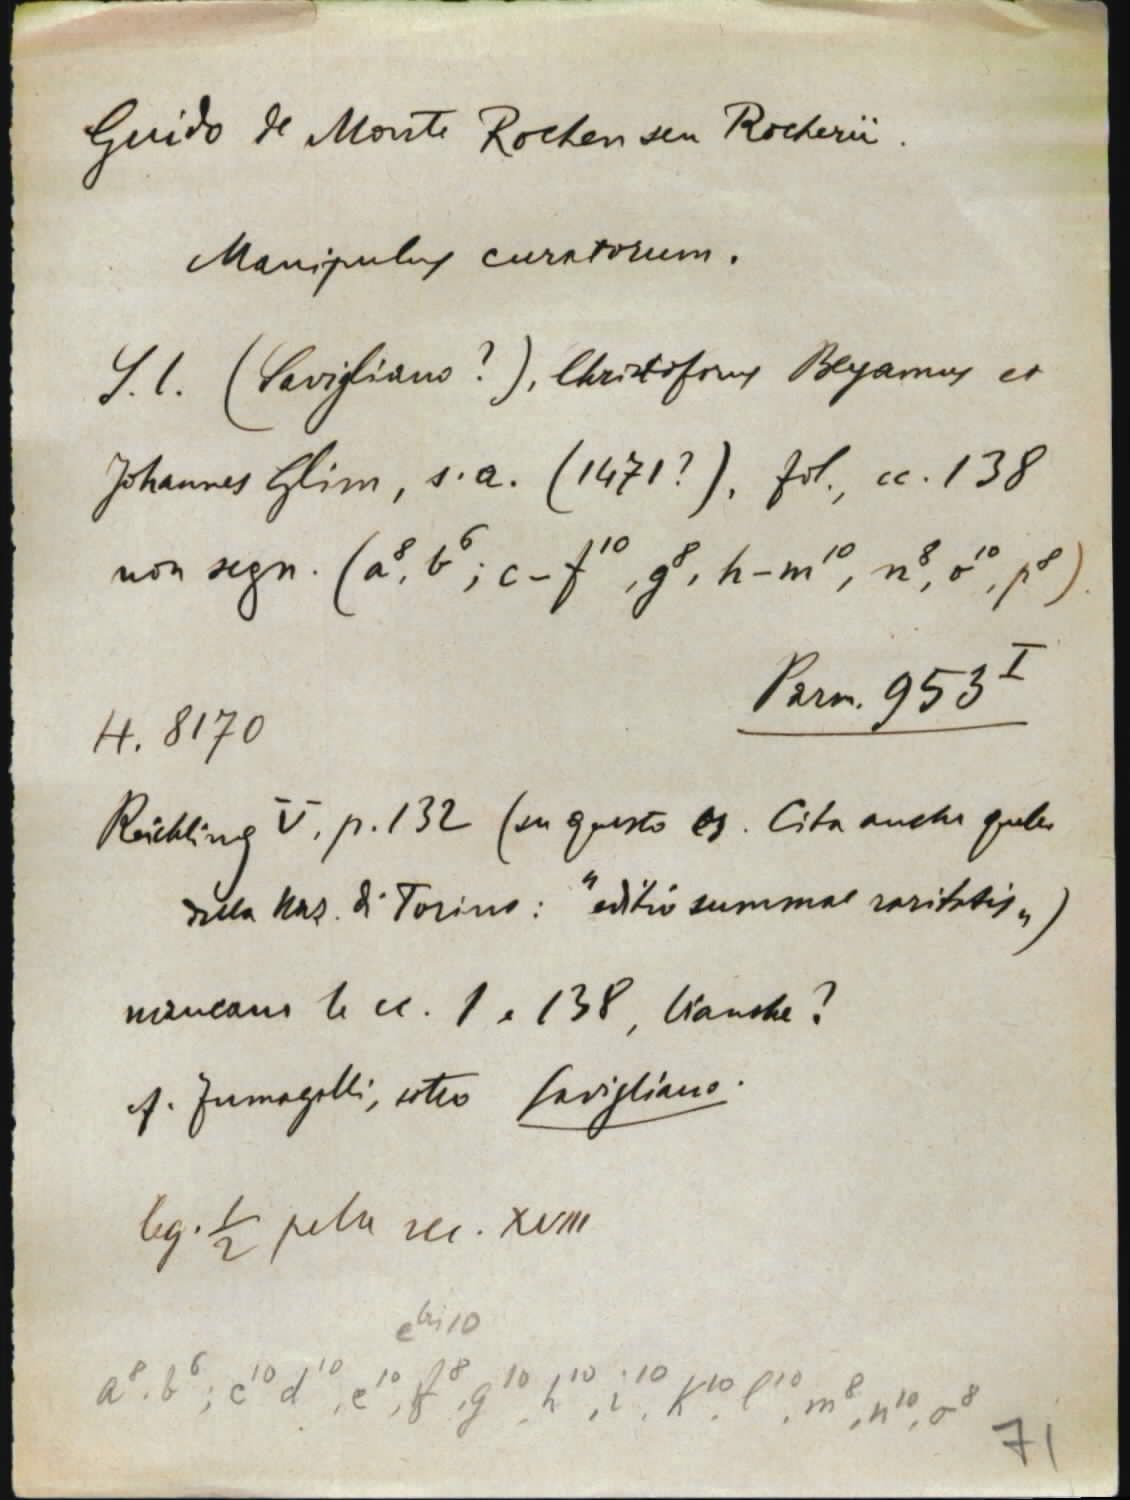 Guido de Monte Rochen seu Rocherii.
Manipulus curatorum.
S. l. (Savigliano?), Christoforus Beyamus et
Johannes Glim, s. a. (1471?), fol., cc. 138
non segn. (a⁸, b⁶; c–f¹⁰, g⁸, h–m¹⁰, n⁸, o¹⁰, p⁸).
Parm. 953ᴵ
H. 8170
Reichling V, p. 132 (su questo es. Cita anche quello
della Naz. di Torino: "editio summae raritatis")
mancano le cc. 1 e 138, bianche?
cf. Fumagalli, sotto Savigliano.
leg. 1/2 pelle sec. XVIII
e bis 10
a⁸, b⁶; c¹⁰ d¹⁰, e¹⁰, f⁸, g¹⁰, h¹⁰, i¹⁰, K¹⁰, l¹⁰, m⁸, n¹⁰, o⁸
71